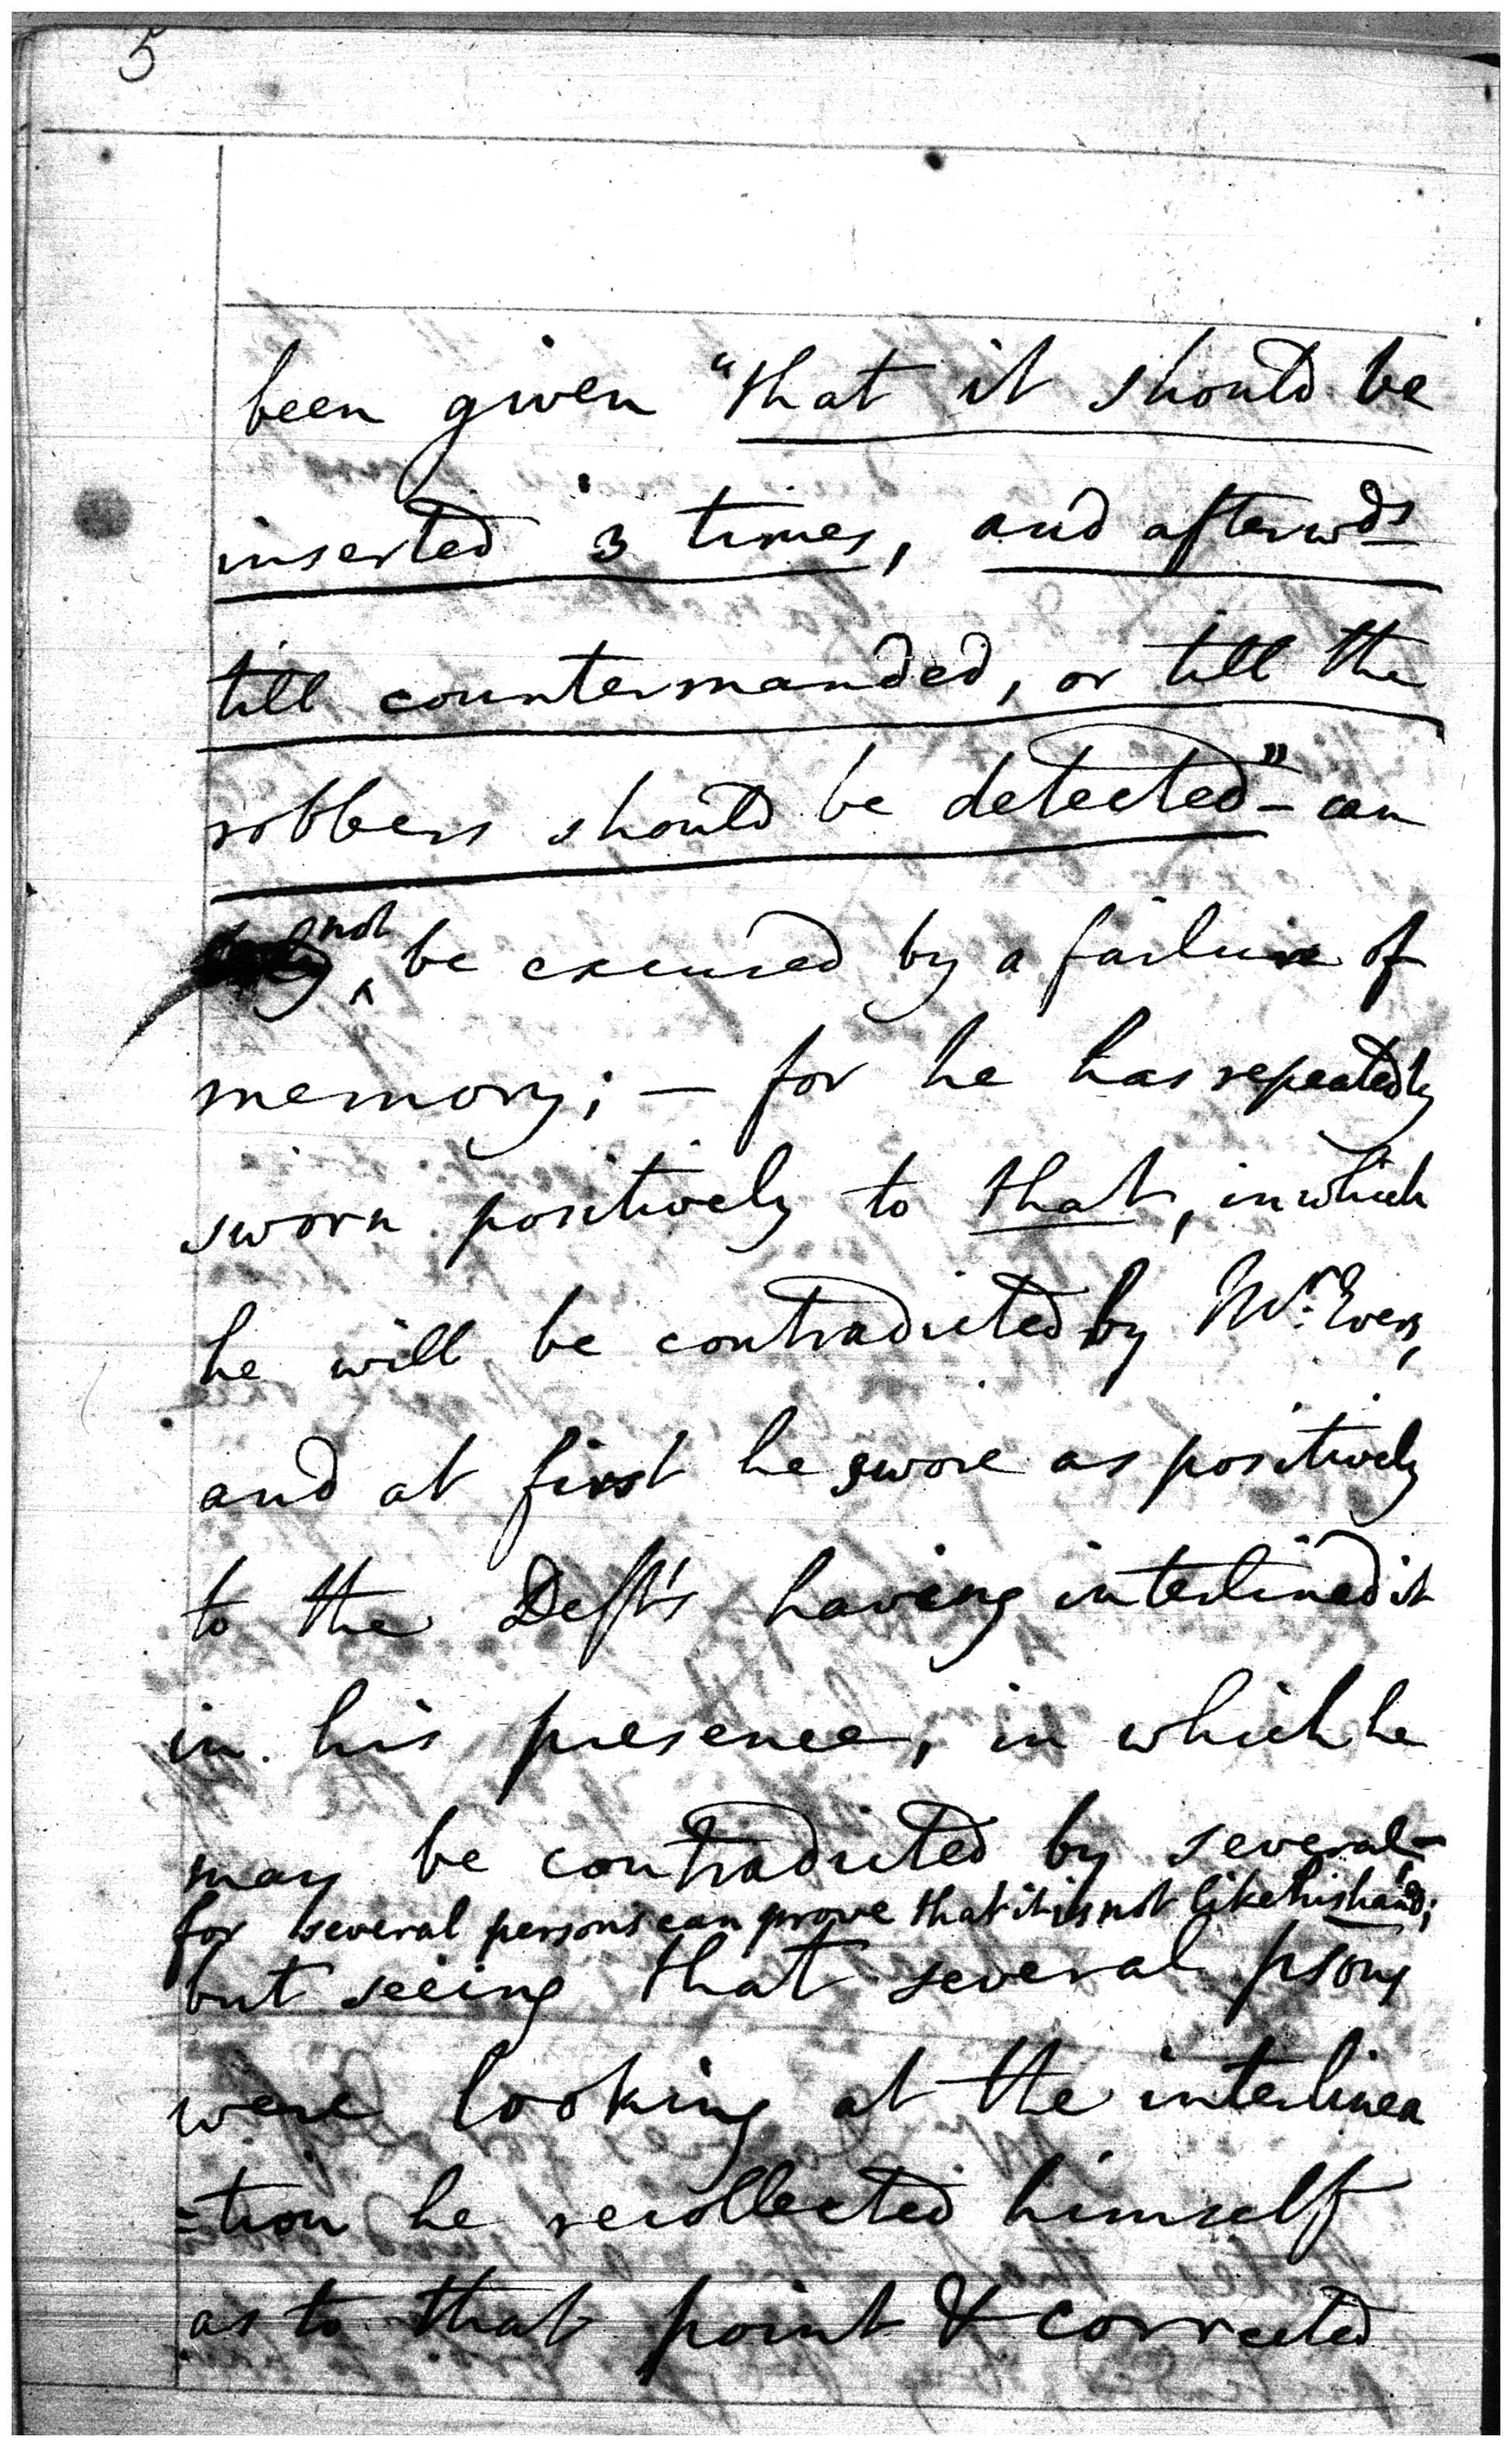 5
been given "that it should be
inserted 3 times, and afterwds
till countermanded, or till the
robbers should be detected" – can
not be excused by a failure of
memory; – for he has repeatedly
sworn positively to that, in which
he will be contradicted by Mr. Evers,
and at first he swore as positively
to the Deft's having interlined it
in his presence, in which he
may be contradicted by several –
for several persons can prove that it is not like his hand;
but seeing that several psons
were looking at the interlinea
=tion he recollected himself
as to that point & corrected